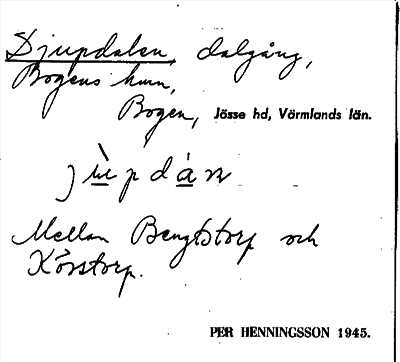 Djupdalen, dalgång,
Bogens kmn,
Bogen, Jösse hd, Värmlands län.
jùpdàn
Mellan Bengtstorp och
Körstorp.
PER HENNINGSSON 1945.